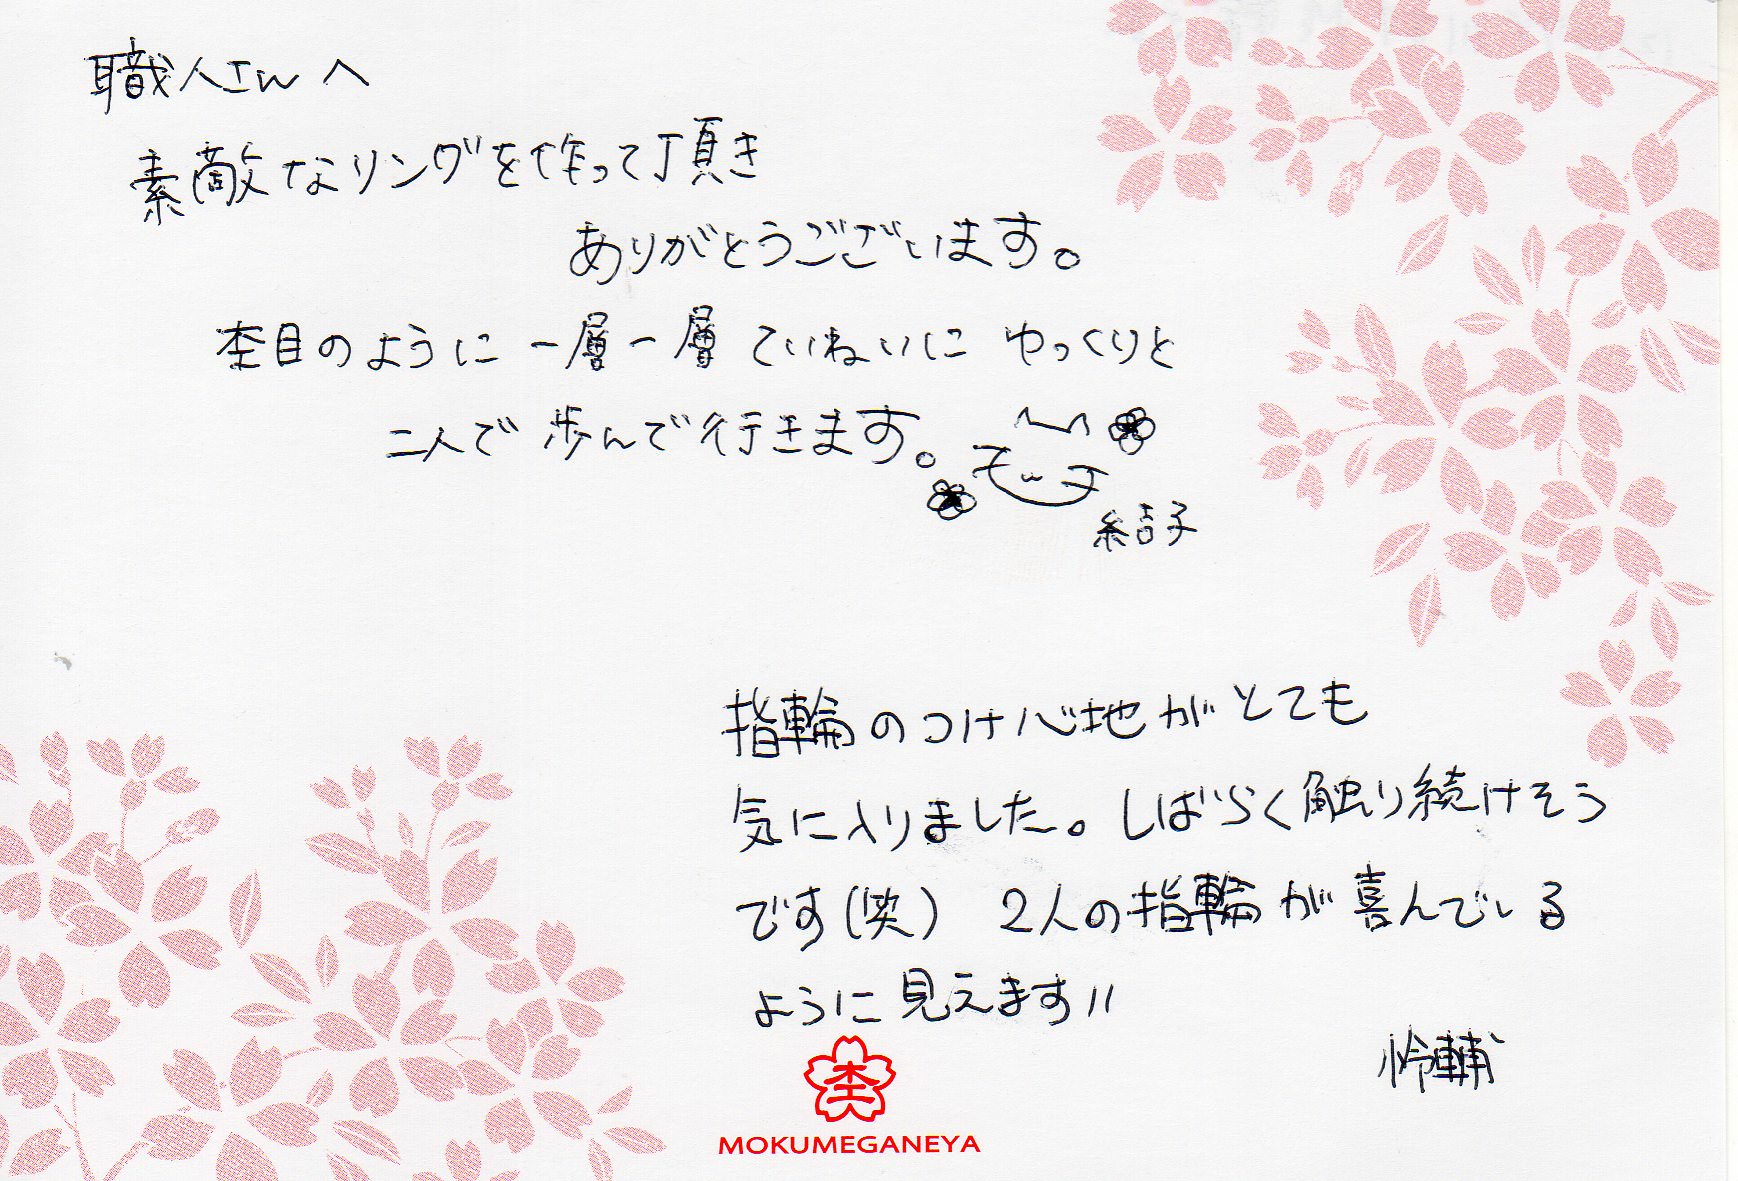 職人さんへ
素敵なリングを作って頂き
ありがとうございます。
杢目のように一層一層ていねいに ゆっくりと
二人で歩んで行きます。
結子
指輪のつけ心地がとても
気に入りました。しばらく触り続けそう
です(笑) 2人の指輪が喜んでいる
ように見えます!!
怜輔
杢
MOKUMEGANEYA